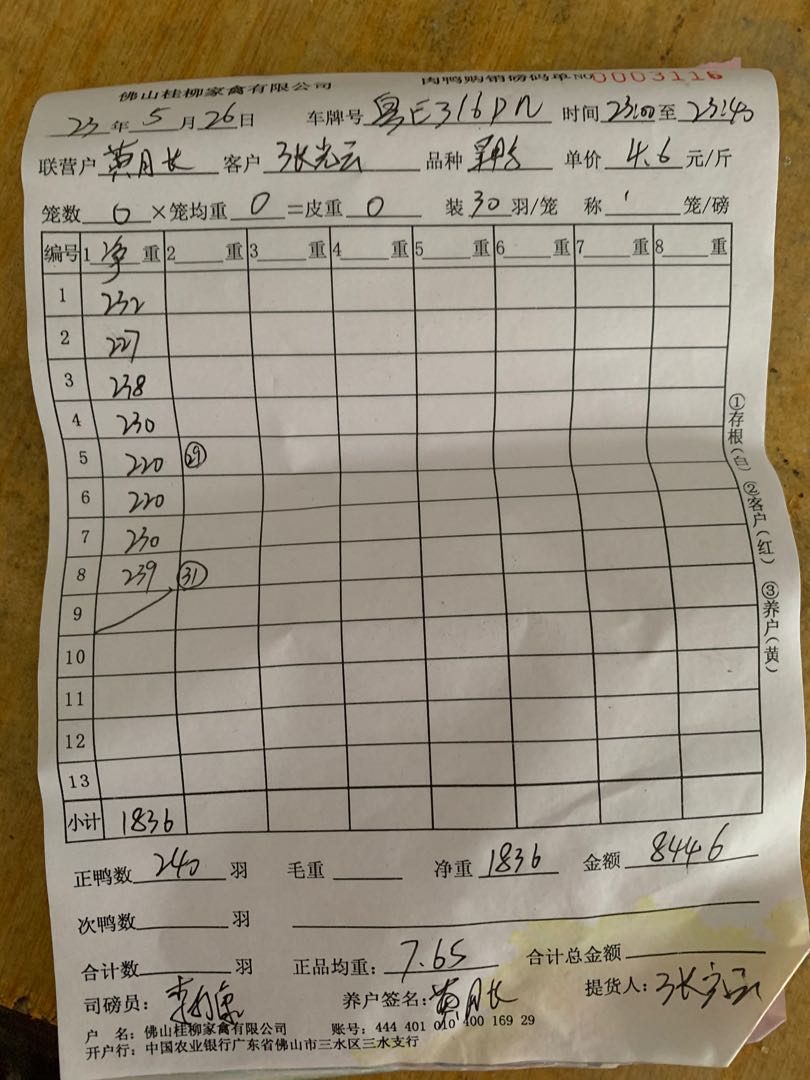 佛山桂柳家禽有限公司 肉鸭购销磅码单 NO 0003116
23 年 5 月 26 日 车牌号 粤E316DN 时间 23:00 至 23:40
联营户 黄月长 客户 张光云 品种 单价 4.6 元/斤
笼数 0 ×笼均重 0 =皮重 0 装 30 羽/笼 称 1 笼/磅
编号 1 净 重 2 重 3 重 4 重 5 重 6 重 7 重 8 重
1 232
2 227
3 238
4 230
5 220 29
6 220
7 230
8 239 31
9
10
11
12
13
小计 1836
①存根(白) ②客户(红) ③养户(黄)
正鸭数 240 羽 毛重 净重 1836 金额 8446
次鸭数 羽
合计数 羽 正品均重: 7.65 合计总金额
司磅员: 养户签名: 黄月长 提货人: 张光云
户 名: 佛山桂柳家禽有限公司 账号: 444 401 010 400 169 29
开户行: 中国农业银行广东省佛山市三水区三水支行